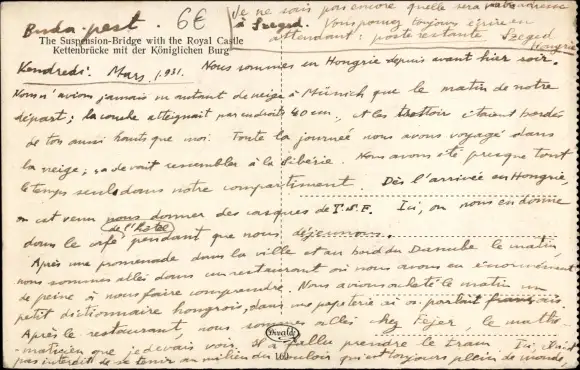 Buda-pest. 6€
Je ne sais pas encore quelle sera notre adresse
à Szeged. Vous pouvez toujours écrire en
attendant : poste restante Szeged
Hongrie
The Suspension-Bridge with the Royal Castle
Kettenbrücke mit der Königlichen Burg
Vendredi. Mars, 1931. Nous sommes en Hongrie depuis avant hier soir.
Nous n'avions jamais vu autant de neige à Münich que le matin de notre
départ; la couche atteignait par endroits 40 cm., et les trottoir étaient bordés
de tas aussi hauts que moi. Toute la journée nous avons voyagé dans
la neige; ça devait ressembler à la Sibérie. Nous avons été presque tout
le temps seuls dans notre compartiment. Dès l'arrivée en Hongrie,
on est venu nous donner des casques de T.S.F. Ici, on nous en donne
dans le café de l'hotel pendant que nous déjeunons.
Après une promenade dans la ville et au bord du Danube le matin,
nous sommes allés dans un restaurant où nous avons eu énormément
de peine à nous faire comprendre. Nous avions acheté le matin un
petit dictionnaire hongrois, dans une papeterie où on parlait français.
Après le restaurant, nous sommes allés chez Fejer, le mathé-
-maticien que je devais voir. Il a fallu prendre le tram Ici,
pas interdit de se tenir au milieu du toujours pleins de monde,
Dévaldé
160